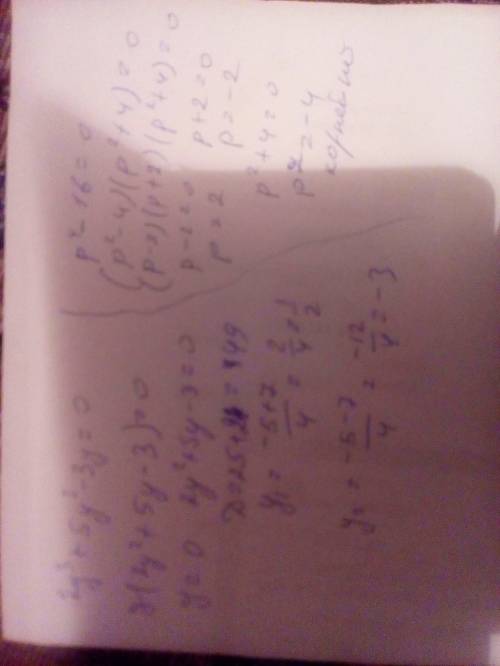 2y³ + 5y² - 3y = 0
y(2y² + 5y - 3) = 0
y = 0 2y² + 5y - 3 = 0
D = 25 + 24 = 49
y₁ = (-5+7)/4 = 2/4 = 1/2
y₂ = (-5-7)/4 = -12/4 = -3
p² - 16 = 0
(p² - 4)(p² + 4) = 0
(p - 2)(p + 2)(p² + 4) = 0
p - 2 = 0 p + 2 = 0
p = 2 p = -2
p² + 4 = 0
p² = -4
корней нет